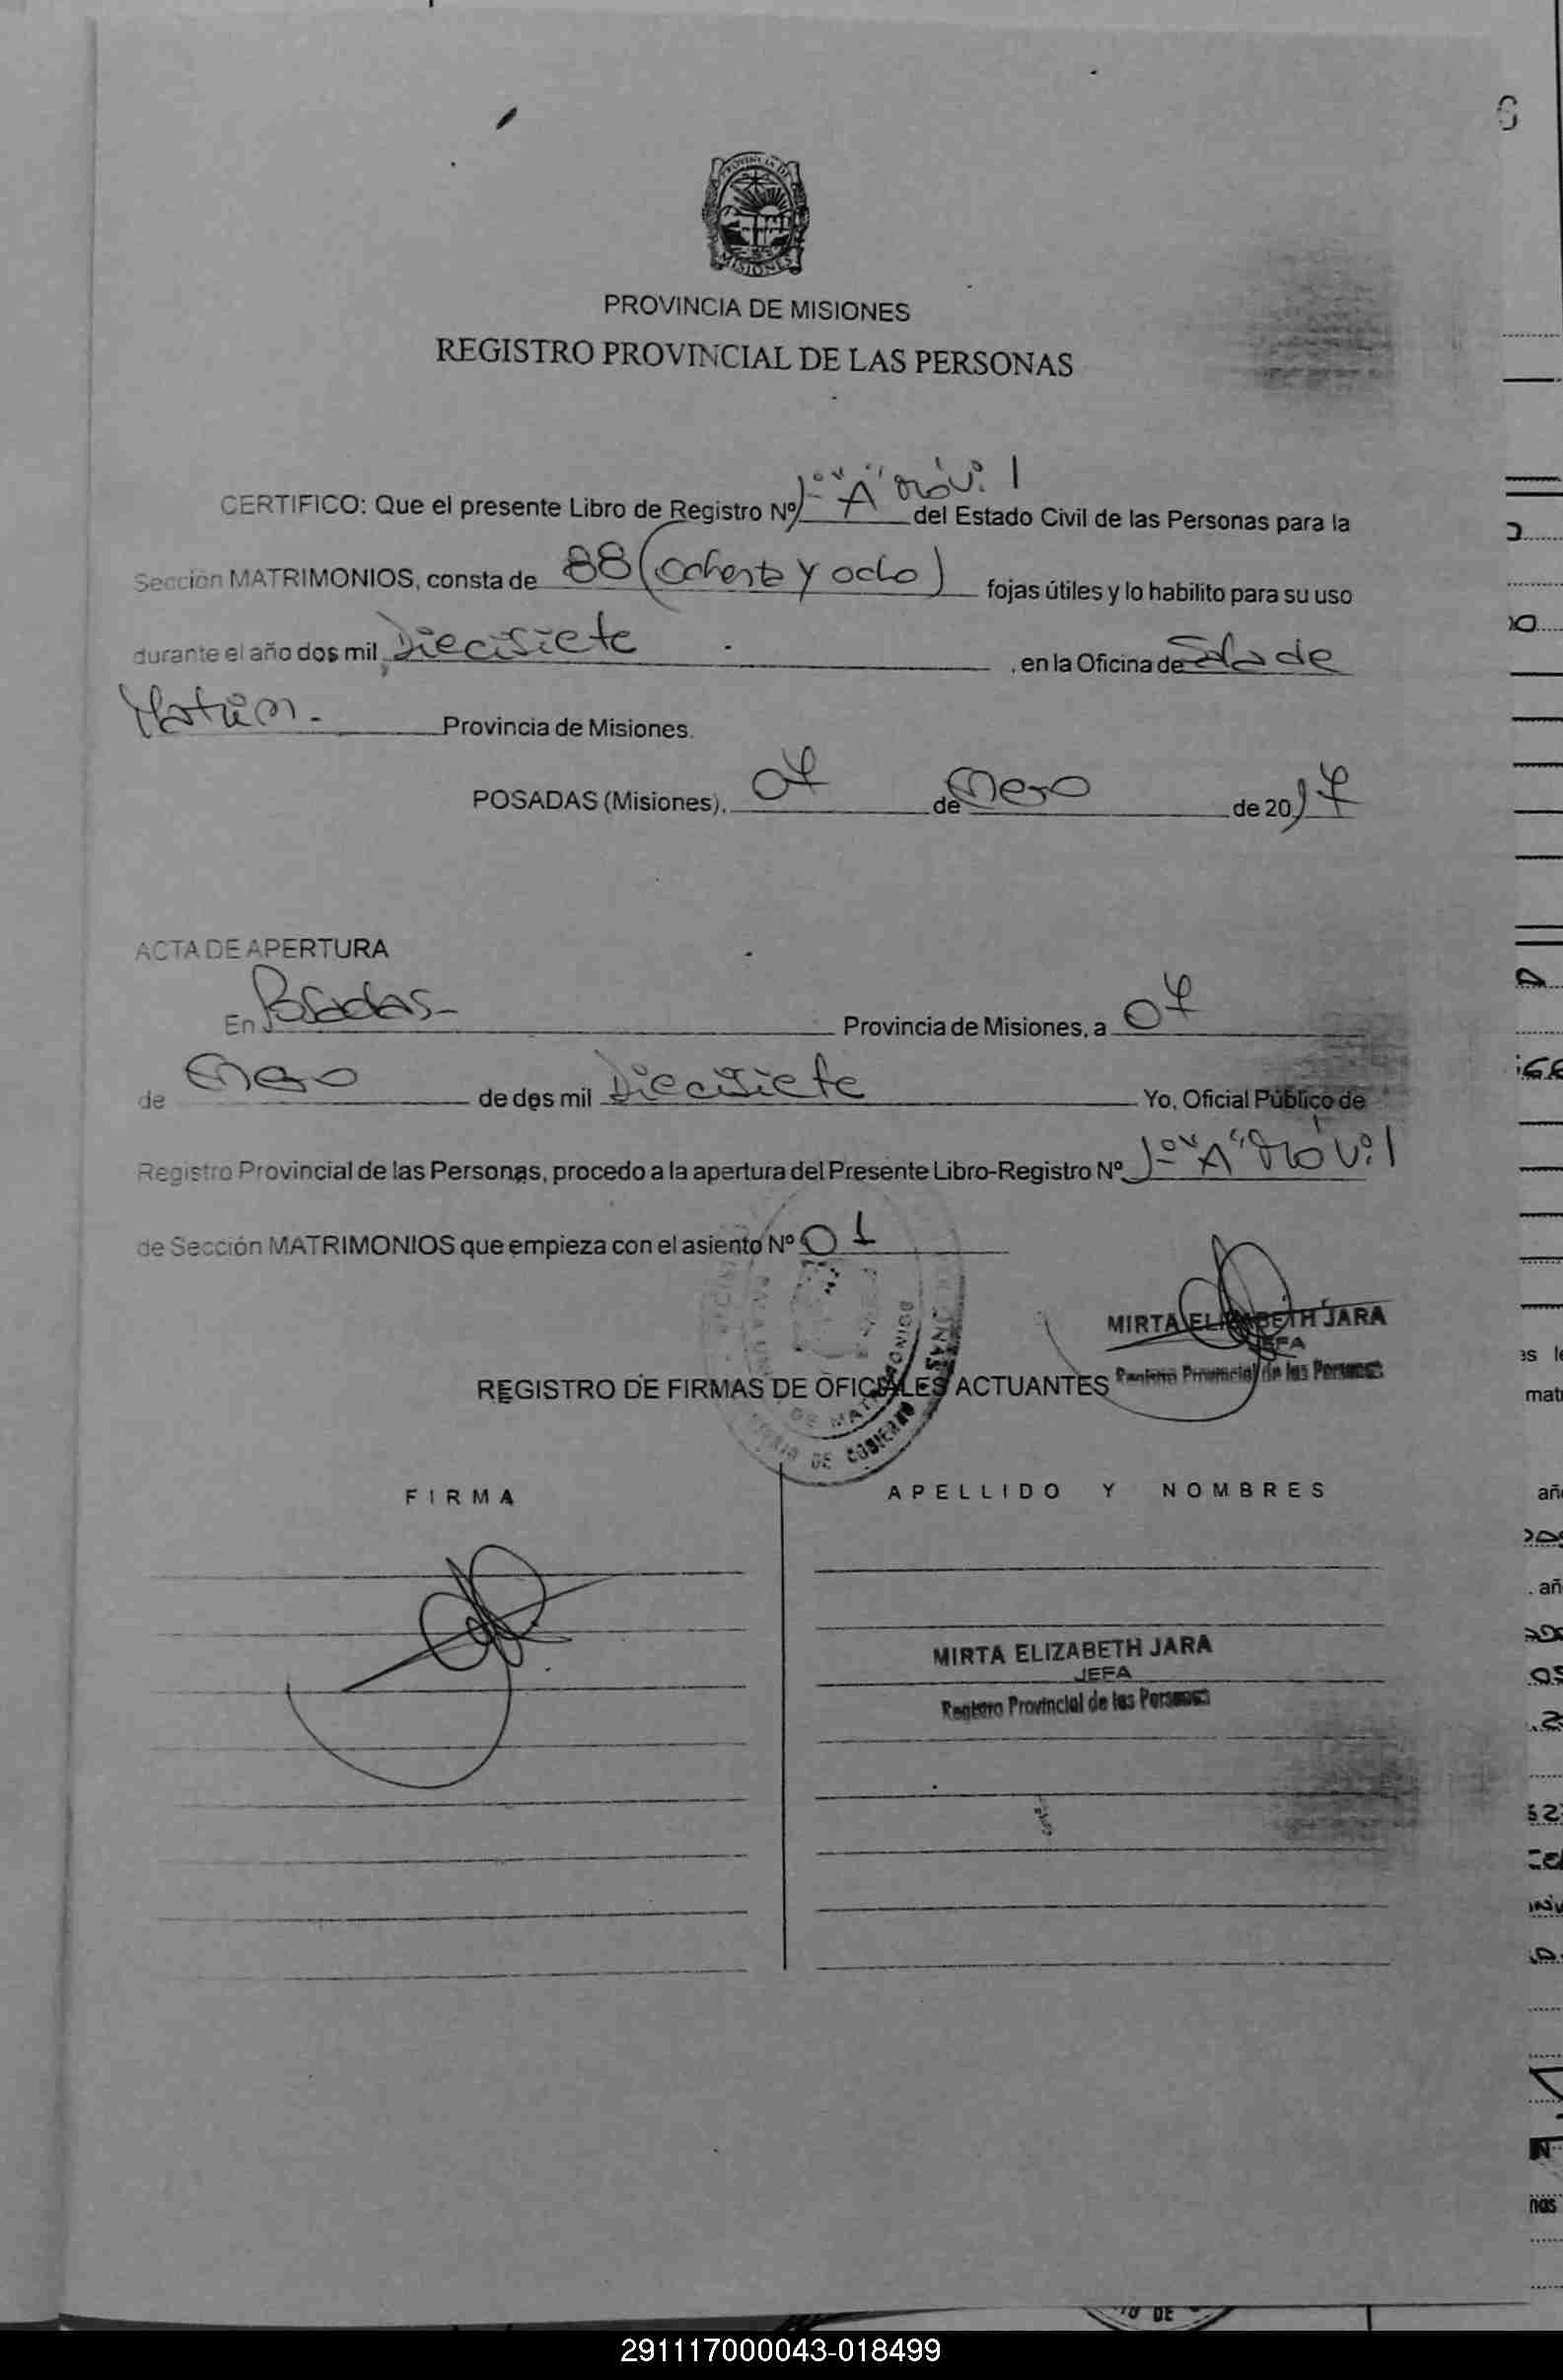 PROVINCIA DE
MISIONES
PROVINCIA DE MISIONES
REGISTRO PROVINCIAL DE LAS PERSONAS
CERTIFICO: Que el presente Libro de Registro Nº 1º "A" Móvil del Estado Civil de las Personas para la
Sección MATRIMONIOS, consta de 88 (ochenta y ocho) fojas útiles y lo habilito para su uso
durante el año dos mil Diecisiete , en la Oficina de Sala de
Matrim. Provincia de Misiones.
POSADAS (Misiones), 07 de Enero de 2017
ACTA DE APERTURA
En Posadas - Provincia de Misiones, a 07
de Enero de dos mil Diecisiete Yo, Oficial Público de
Registro Provincial de las Personas, procedo a la apertura del Presente Libro-Registro Nº 1º "A" Móvil
de Sección MATRIMONIOS que empieza con el asiento Nº 01
MIRTA ELIZABETH JARA
JEFA
Registro Provincial de las Personas
REGISTRO DE FIRMAS DE OFICIALES ACTUANTES
DE MATRIMONIOS
DE GOBIERNO
FIRMA APELLIDO Y NOMBRES
MIRTA ELIZABETH JARA
JEFA
Registro Provincial de las Personas
291117000043-018499